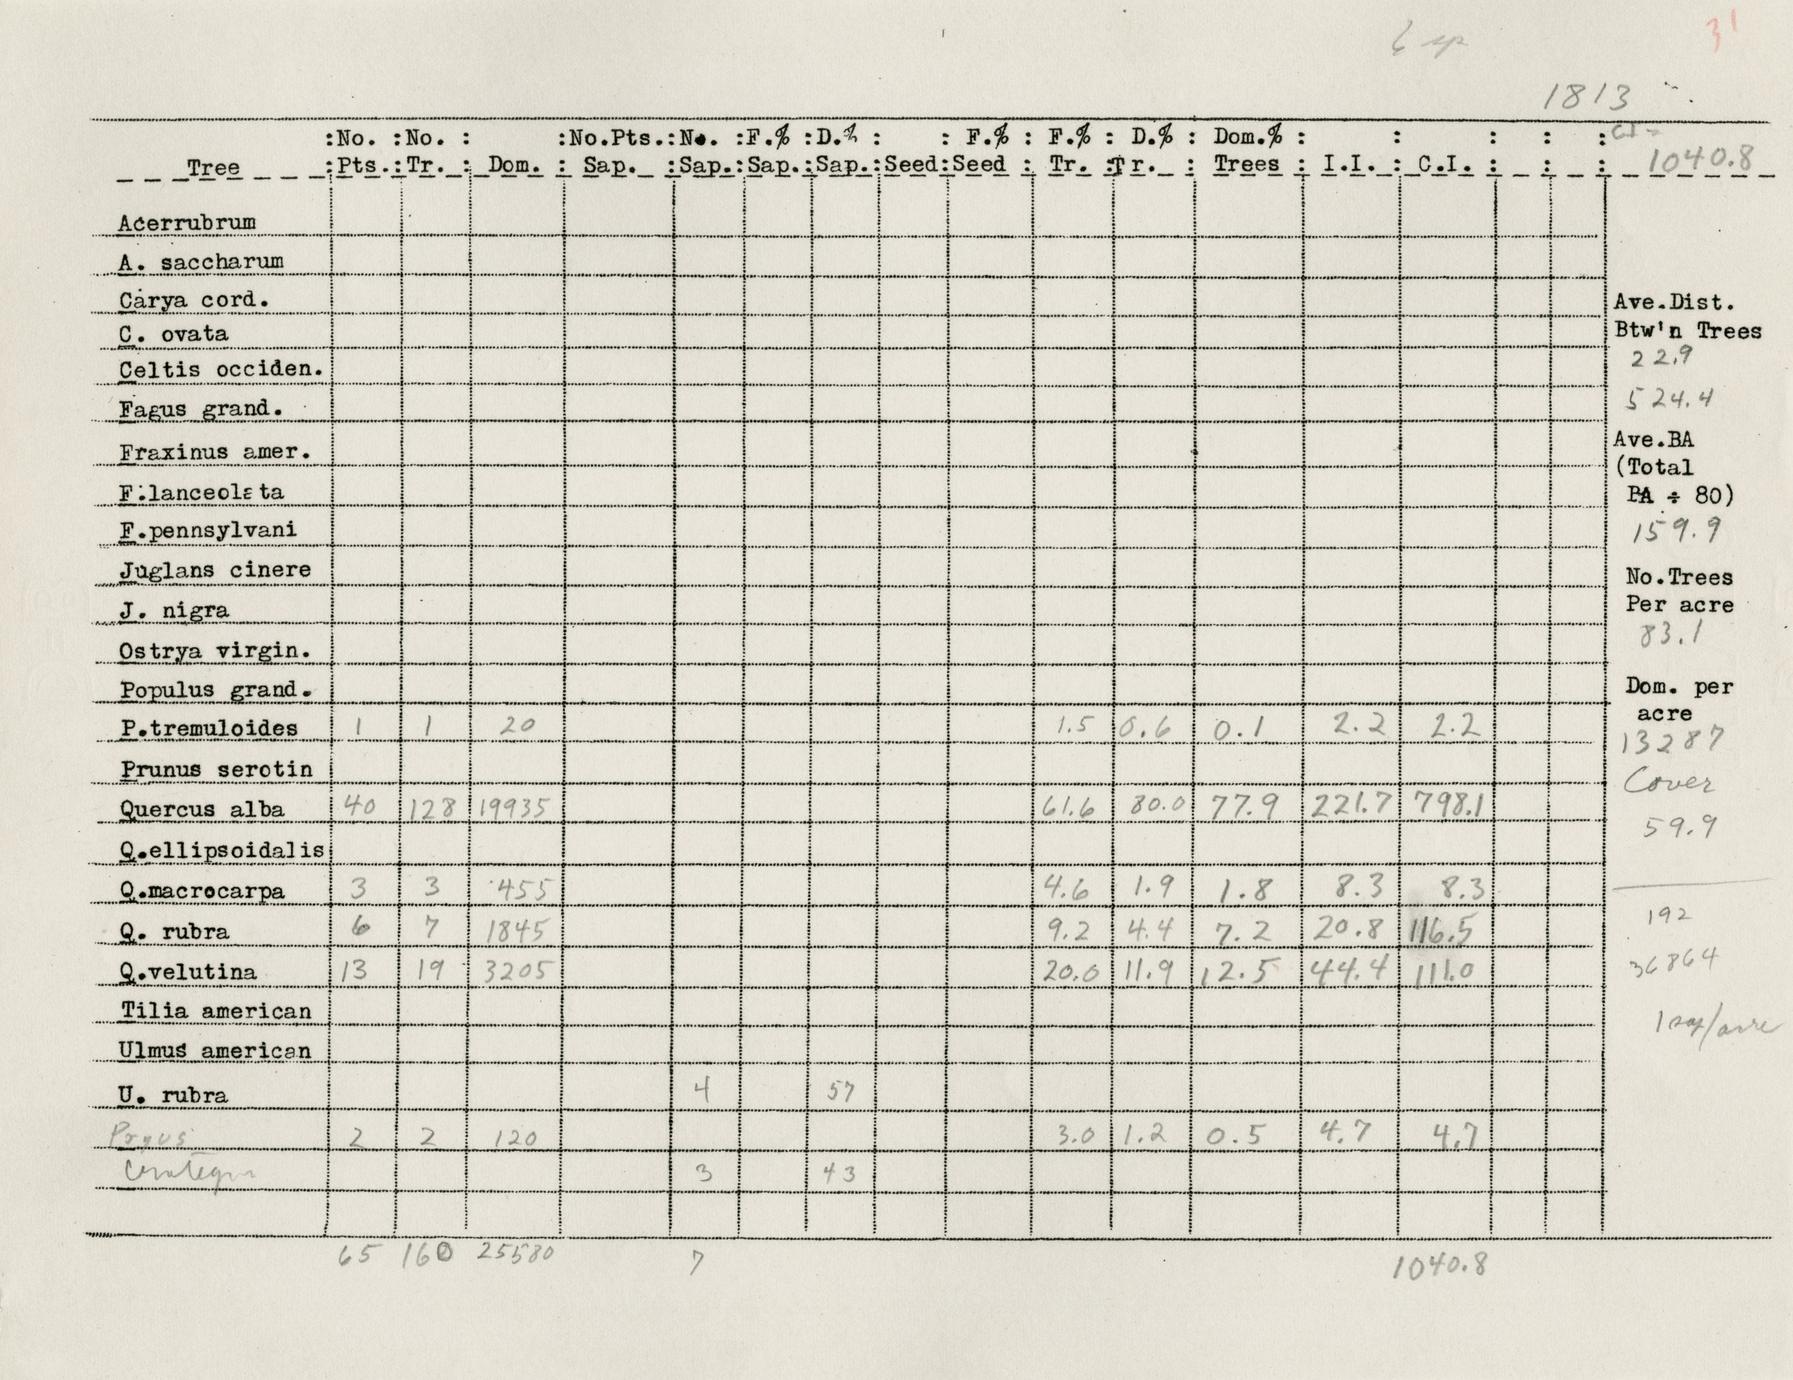 6 sp
31
1813
:No. :No. : :No.Pts.:No. :F.% :D.% : : F.% : F.% : D.% : Dom.% : : : : : CI =
Tree :Pts.:Tr. : Dom. : Sap. :Sap.:Sap.:Sap.:Seed:Seed : Tr. :Tr. : Trees : I.I. : C.I. : : : 1040.8
Acerrubrum
A. saccharum
Carya cord.
Ave.Dist.
C. ovata
Btw'n Trees
22.9
Celtis occiden.
524.4
Fagus grand.
Ave.BA
Fraxinus amer.
(Total
F.lanceolata
BA ÷ 80)
F.pennsylvani
159.9
Juglans cinere
No.Trees
J. nigra
Per acre
83.1
Ostrya virgin.
Populus grand.
Dom. per
acre
P.tremuloides 1 1 20 1.5 0.6 0.1 2.2 2.2
13287
Prunus serotin
Cover
Quercus alba 40 128 19935 61.6 80.0 77.9 221.7 798.1
59.9
Q.ellipsoidalis
Q.macrocarpa 3 3 455 4.6 1.9 1.8 8.3 8.3
192
Q. rubra 6 7 1845 9.2 4.4 7.2 20.8 116.5
36864
Q.velutina 13 19 3205 20.0 11.9 12.5 44.4 111.0
Tilia american
1 sap/acre
Ulmus american
U. rubra 4 57
Pyrus 2 2 120 3.0 1.2 0.5 4.7 4.7
Crategus 3 43
65 160 25580 7 1040.8